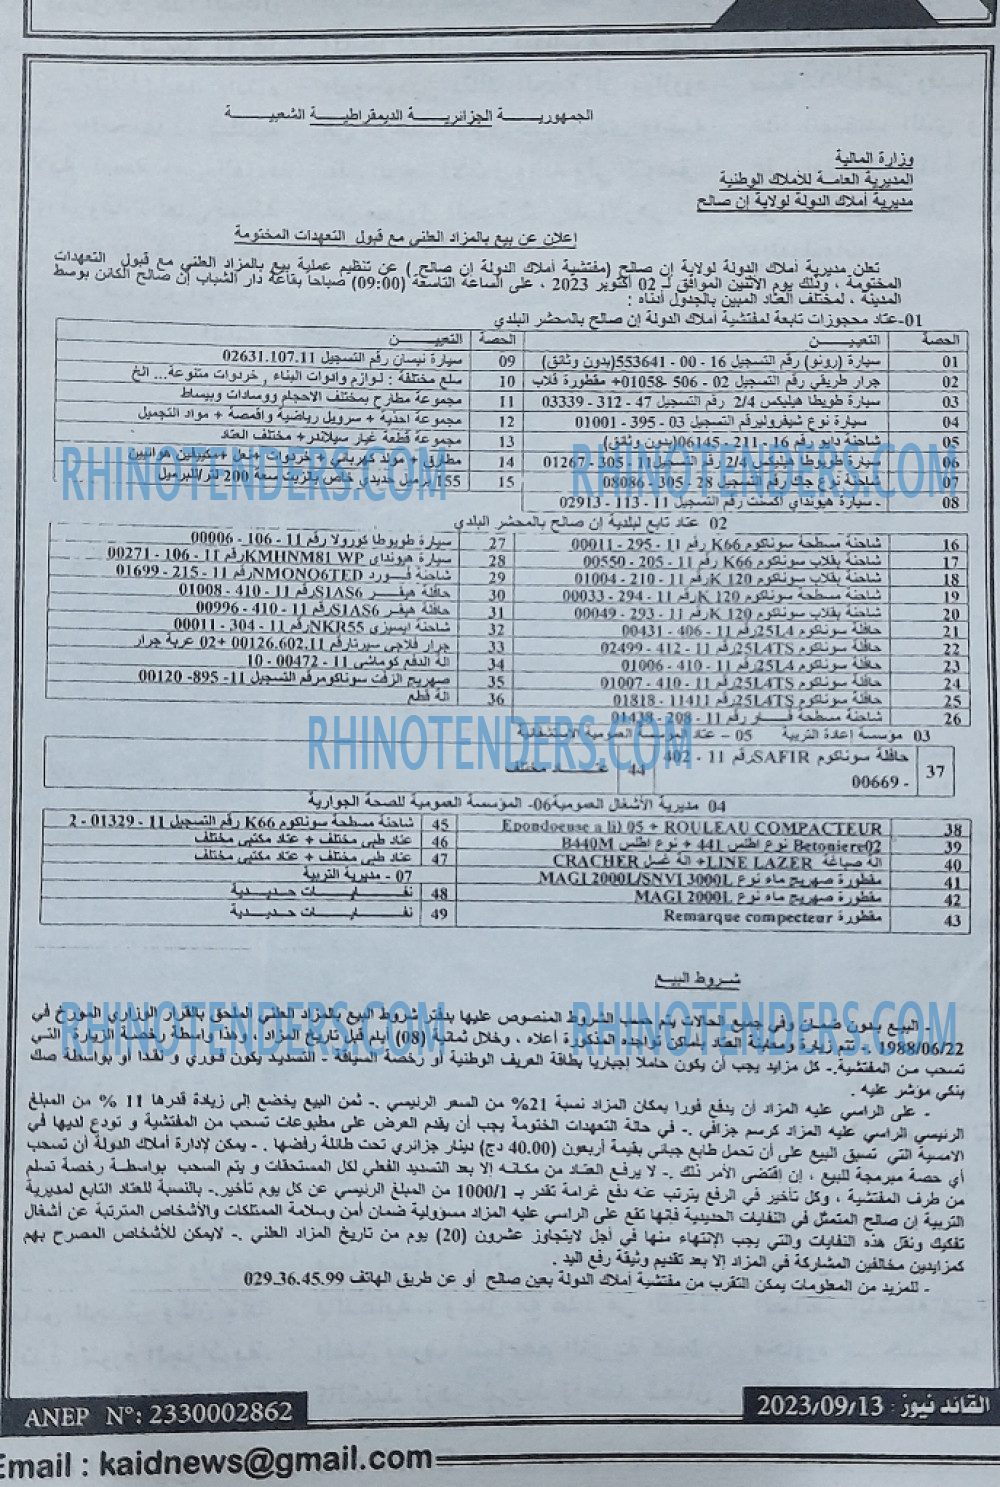 الجمهورية الجزائرية الديمقراطية الشعبية
وزارة المالية
المديرية العامة للأملاك الوطنية
مديرية أملاك الدولة لولاية إن صالح
إعلان عن بيع بالمزاد العلني مع قبول التعهدات المختومة
تعلن مديرية أملاك الدولة لولاية إن صالح (مفتشية أملاك الدولة إن صالح) عن تنظيم عملية بيع بالمزاد العلني مع قبول التعهدات
المختومة ، وذلك يوم الاثنين الموافق لـ 02 أكتوبر 2023 ، على الساعة التاسعة (09:00) صباحا بقاعة دار الشباب إن صالح الكائن بوسط
المدينة ، لمختلف العتاد المبين بالجدول أدناه :
01-عتاد محجوزات تابعة لمفتشية أملاك الدولة إن صالح بالمحشر البلدي
الحصة التعييـــن الحصة التعييـــن
01 سيارة (رونو) رقم التسجيل 16 - 00 - 553641(بدون وثائق) 09 سيارة نيسان رقم التسجيل 02631.107.11
02 جرار طريقي رقم التسجيل 02 - 506 -01058+ مقطورة قلاب 10 سلع مختلفة : لوازم وادوات البناء , خردوات متنوعة... الخ
03 سيارة طويطا هيليكس 2/4 رقم التسجيل 47 - 312 - 03339 11 مجموعة مطارح بمختلف الاحجام ووسادات وبيساط
04 سيارة نوع شيفروليرقم التسجيل 03 - 395 - 01001 12 مجموعة احذية + سرويل رياضية واقمصة + مواد التجميل
05 شاحنة دايو رقم 16 - 211 - 06145(بدون وثائق) 13 مجموعة قطعة غيار سيلاندر+ مختلف العتاد
06 سيارة طويوطا هيليكس 2/4 رقم التسجيل11 - 305 - 01267 14 مطارق + مولد كهربائي + خردوات +نعل +مكيفين هوائيين
07 شاحنة نوع جاك رقم التسجيل 28 - 305 - 08086 15 155 برميل حديدي خاص بالزيت سعة 200 لتر/للبرميل
08 - سيارة هيونداي اكسنت رقم التسجيل 11 - 113 - 02913
02 عتاد تابع لبلدية إن صالح بالمحشر البلدي
16 شاحنة مسطحة سوناكوم K66 رقم 11 - 295 - 00011 27 سيارة طويوطا كورولا رقم 11 - 106 - 00006
17 شاحنة بقلاب سوناكوم K66 رقم 11 - 205 - 00550 28 سيارة هيونداي KMHNM81 WPرقم 11 - 106 - 00271
18 شاحنة بقلاب سوناكوم K 120رقم 11 - 210 - 01004 29 شاحنة فورد NMONO6TEDرقم 11 - 215 - 01699
19 شاحنة مسطحة سوناكوم K 120 رقم 11 - 294 - 00033 30 حافلة هيقر S1AS6رقم 11 - 410 - 01008
20 شاحنة بقلاب سوناكوم K 120رقم 11 - 293 - 00049 31 حافلة هيقر S1AS6رقم 11 - 410 - 00996
21 حافلة سوناكوم 25L4رقم 11 - 406 - 00431 32 شاحنة ايسيزي NKR55رقم 11 - 304 - 00011
22 حافلة سوناكوم 25L4TSرقم 11 - 412 - 02499 33 جرار فلاحي سيرتارقم 00126.602.11 +02 عربة جرار
23 حافلة سوناكوم 25L4رقم 11 - 410 - 01006 34 الة الدفع كوماتشي 11 - 00472 - 10
24 حافلة سوناكوم 25L4TSرقم 11 - 410 - 01007 35 صهريج الزفت سوناكومرقم التسجيل 11- 895- 00120
25 حافلة سوناكوم 25L4TSرقم 11411 - 01818 36 الة قطع
26 شاحنة مسطحة فـــار رقم 11 - 208 - 01438
03 مؤسسة إعادة التربية 05 - عتاد المؤسسة العمومية الاستشفائية
37 حافلة سوناكوم SAFIRرقم 11 - 402 - 00669 44 عتـــاد مختلف
04 مديرية الأشغال العمومية 06- المؤسسة العمومية للصحة الجوارية
38 Epondoeuse a li) 05 + ROULEAU COMPACTEUR 45 شاحنة مسطحة سوناكوم K66 رقم التسجيل 11 - 01329 - 2
39 Betoniere02 نوع اطلس 44L + نوع اطلس B440M 46 عتاد طبي مختلف + عتاد مكتبي مختلف
40 الة صباغة LINE LAZER+ الة غسل CRACHER 47 عتاد طبي مختلف + عتاد مكتبي مختلف
41 مقطورة صهريج ماء نوع MAGI 2000L/SNVI 3000L 07 - مديرية التربية
42 مقطورة صهريج ماء نوع MAGI 2000L 48 نفـــايـــات حـديـديـة
43 مقطورة Remarque compecteur 49 نفـــايـــات حـديـديـة
شروط البيع
- البيع بدون ضمان وفي جميع الحالات يتم حسب الشروط المنصوص عليها بدفتر شروط البيع بالمزاد العلني الملحق بالقرار الوزاري المؤرخ في
1988/06/22 .- تتم زيارة ومعاينة العتاد بأماكن تواجده المذكورة أعلاه ، وخلال ثمانية (08) أيام قبل تاريخ المزاد ، وهذا بواسطة رخصة الزيارة التي
تسحب من المفتشية.- كل مزايد يجب أن يكون حاملا إجباريا بطاقة التعريف الوطنية أو رخصة السياقة - التسديد يكون فوري و نقدا أو بواسطة صك
بنكي مؤشر عليه .
- على الراسي عليه المزاد أن يدفع فورا بمكان المزاد نسبة 21% من السعر الرئيسي .- ثمن البيع يخضع إلى زيادة قدرها 11 % من المبلغ
الرئيسي الراسي عليه المزاد كرسم جزافي .- في حالة التعهدات المختومة يجب أن يقدم العرض على مطبوعات تسحب من المفتشية و تودع لديها في
الامسية التي تسبق البيع على أن تحمل طابع جبائي بقيمة أربعون (40.00 دج) دينار جزائري تحت طائلة رفضها . - يمكن لإدارة أملاك الدولة أن تسحب
أي حصة مبرمجة للبيع ، إن إقتضى الأمر ذلك .- لا يرفع العتاد من مكانه الا بعد التسديد الفعلي لكل المستحقات و يتم السحب بواسطة رخصة تسلم
من طرف المفتشية ، وكل تأخير في الرفع يترتب عنه دفع غرامة تقدر بـ 1000/1 من المبلغ الرئيسي عن كل يوم تأخير.- بالنسبة للعتاد التابع لمديرية
التربية إن صالح المتمثل في النفايات الحديدية فإنها تقع على الراسي عليه المزاد مسؤولية ضمان أمن وسلامة الممتلكات والأشخاص المترتبة عن أشغال
تفكيك ونقل هذه النفايات والتي يجب الانتهاء منها في أجل لايتجاوز عشرون (20) يوم من تاريخ المزاد العلني .- لايمكن للأشخاص المصرح بهم
كمزايدين مخالفين المشاركة في المزاد إلا بعد تقديم وثيقة رفع اليد .
- للمزيد من المعلومات يمكن التقرب من مفتشية أملاك الدولة بعين صالح أو عن طريق الهاتف 029.36.45.99
القائد نيوز : 2023/09/13
ANEP N°: 2330002862
Email : kaidnews@gmail.com
RHINOTENDERS.COM RHINOTENDERS.COM
RHINOTENDERS.COM
RHINOTENDERS.COM RHINOTENDERS.COM